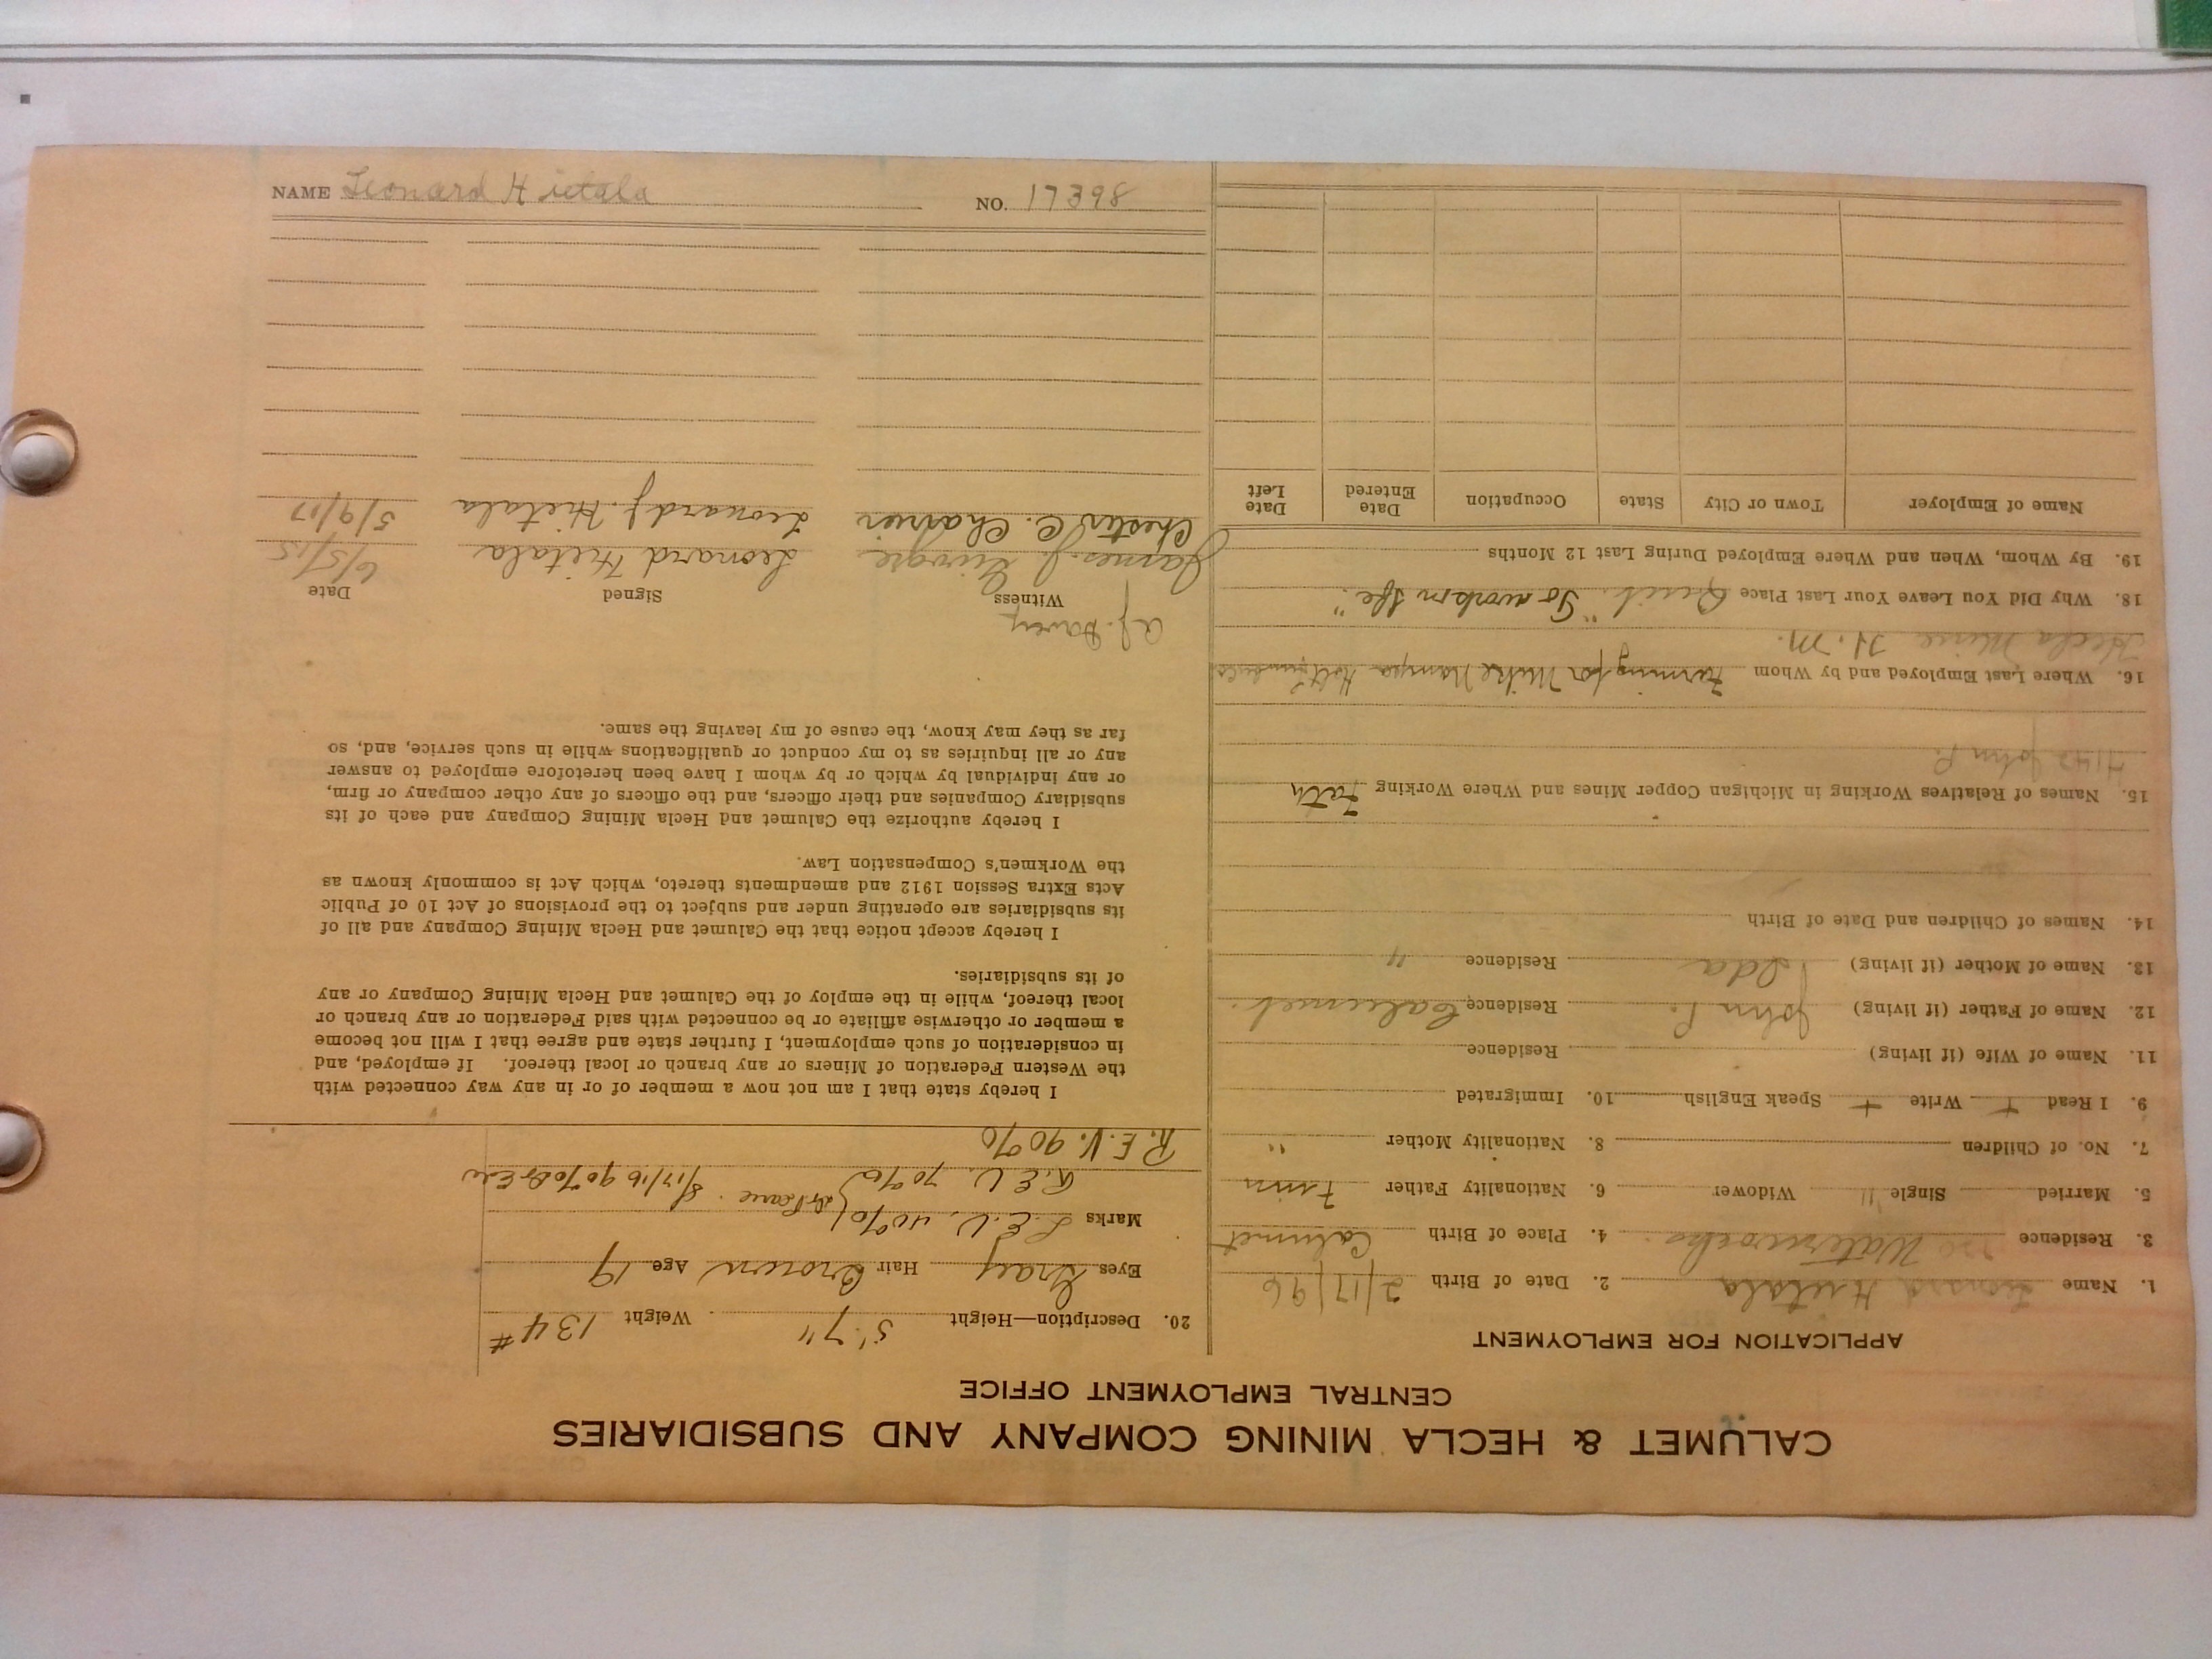 CALUMET & HECLA MINING COMPANY AND SUBSIDIARIES
CENTRAL EMPLOYMENT OFFICE
APPLICATION FOR EMPLOYMENT
1. Name Leonard Hietala 2. Date of Birth 2/17/96
3. Residence Waterworks. 4. Place of Birth Calumet
5. Married Single " Widower 6. Nationality Father Finn
7. No. of Children 8. Nationality Mother "
9. I Read + Write + Speak English 10. Immigrated
11. Name of Wife (if living) Residence
12. Name of Father (if living) John P. Residence Calumet.
13. Name of Mother (if living) Ida Residence "
14. Names of Children and Date of Birth
15. Names of Relatives Working in Michigan Copper Mines and Where Working Fath
John P.
16. Where Last Employed and by Whom Farming for Mike
Hecla Mine N. M.
18. Why Did You Leave Your Last Place Quit. "To work on
19. By Whom, When and Where Employed During Last 12 Months
Name of Employer Town or City State Occupation Date Entered Date Left
20. Description—Height 5'7" Weight 134#
Eyes Gray Hair Brown Age 19
Marks L.E.V. 40%
R.E.V. 70% 8/17/16 90%
R.E.V. 90%
I hereby state that I am not now a member of or in any way connected with
the Western Federation of Miners or any branch or local thereof. If employed, and
in consideration of such employment, I further state and agree that I will not become
a member or otherwise affiliate or be connected with said Federation or any branch or
local thereof, while in the employ of the Calumet and Hecla Mining Company or any
of its subsidiaries.
I hereby accept notice that the Calumet and Hecla Mining Company and all of
its subsidiaries are operating under and subject to the provisions of Act 10 of Public
Acts Extra Session 1912 and amendments thereto, which Act is commonly known as
the Workmen's Compensation Law.
I hereby authorize the Calumet and Hecla Mining Company and each of its
subsidiary Companies and their officers, and the officers of any other company or firm,
or any individual by which or by whom I have been heretofore employed to answer
any or all inquiries as to my conduct or qualifications while in such service, and, so
far as they may know, the cause of my leaving the same.
A.J. Davey
Witness Signed Date
James J. Leonard Hietala 6/5/15
Chester C. Leonard J. Hietala 5/9/17
NAME Leonard Hietala NO. 17398